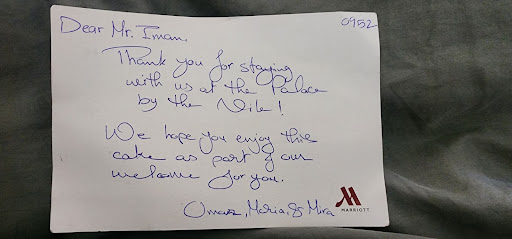 0952
Dear Mr. Iman.
Thank you for staying
with us at the Palace
by the Nile!
We hope you enjoy this
cake as part of our
welcome for you.
Omar, Maria, & Mira
MARRIOTT